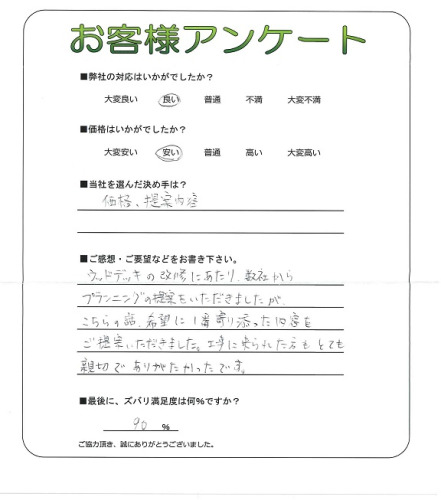 お客様アンケート
■弊社の対応はいかがでしたか？
大変良い 良い 普通 不満 大変不満
■価格はいかがでしたか？
大変安い 安い 普通 高い 大変高い
■当社を選んだ決め手は？
価格、提案内容
■ご感想・ご要望などをお書き下さい。
ウッドデッキの改修にあたり、数社から
プランニングの提案をいただきましたが、
こちらの話、希望に1番寄り添った内容を
ご提案いただきました。工事に来られた方も とても
親切で ありがたかったです。
■最後に、ズバリ満足度は何%ですか？
90 %
ご協力頂き、誠にありがとうございました。